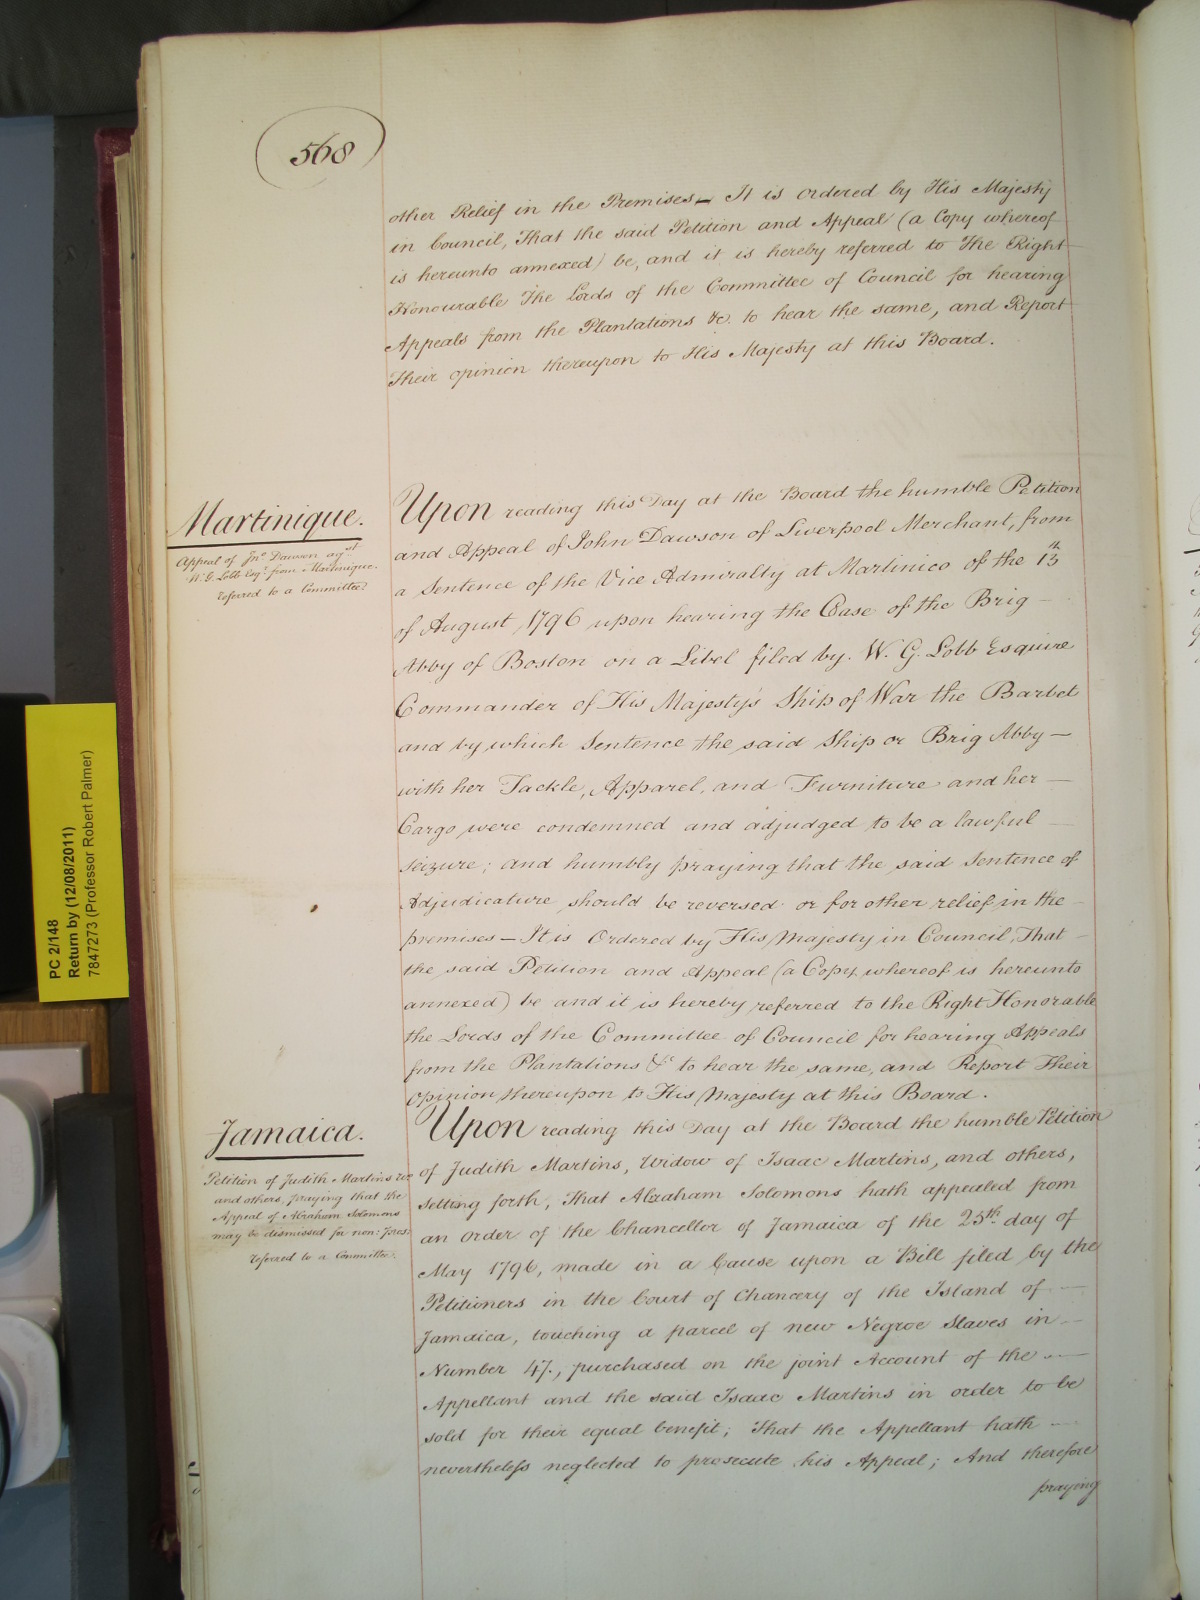 568
other Relief in the Premises — It is ordered by His Majesty
in Council, That the said Petition and Appeal (a Copy whereof
is hereunto annexed) be, and it is hereby referred to The Right
Honourable The Lords of the Committee of Council for hearing
Appeals from the Plantations &c. to hear the same, and Report
Their opinion thereupon to His Majesty at this Board.
Martinique.
Appeal of Jno. Dawson agst
W. G. Lobb Esqr. from Martinique.
referred to a Committee.
Upon reading this Day at the Board the humble Petition
and Appeal of John Dawson of Liverpool Merchant, from
a Sentence of the Vice Admiralty at Martinico of the 13th
of August 1796 upon hearing the Case of the Brig —
Abby of Boston on a Libel filed by W. G. Lobb Esquire
Commander of His Majesty's Ship of War the Barbet
and by which Sentence the said Ship or Brig Abby —
with her Tackle, Apparel, and Furniture and her —
Cargo were condemned and adjudged to be a lawful —
seizure; and humbly praying that the said Sentence of
Adjudicature should be reversed or for other relief in the
premises — It is Ordered by His Majesty in Council, That —
the said Petition and Appeal (a Copy whereof is hereunto
annexed) be and it is hereby referred to the Right Honorable
the Lords of the Committee of Council for hearing Appeals
from the Plantations &c to hear the same, and Report Their
opinion thereupon to His Majesty at this Board.
Jamaica.
Petition of Judith Martins
and others, praying that the
Appeal of Abraham Solomons
may be dismissed for non: pros:
referred to a Committee.
Upon reading this Day at the Board the humble Petition
of Judith Martins, Widow of Isaac Martins, and others,
setting forth, That Abraham Solomons hath appealed from
an order of the Chancellor of Jamaica of the 25th day of
May 1796, made in a Cause upon a Bill filed by the
Petitioners in the Court of Chancery of the Island of —
Jamaica, touching a parcel of new Negroe Slaves in —
Number 47, purchased on the joint Account of the —
Appellant and the said Isaac Martins in order to be
sold for their equal benefit; That the Appellant hath —
nevertheless neglected to prosecute his Appeal; And therefore
praying
PC 2/148
Return by (12/08/2011)
7847273 (Professor Robert Palmer)